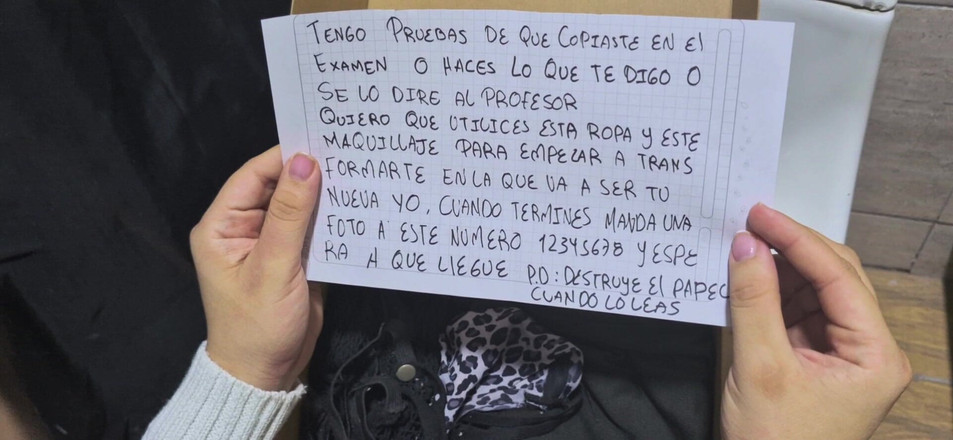 TENGO PRUEBAS DE QUE COPIASTE EN El
EXAMEN O HACES LO QUE TE DIGO O
SE LO DIRE AL PROFESOR
QUIERO QUE UTILICES ESTA ROPA Y ESTE
MAQUILLAJE PARA EMPEZAR A TRANS
FORMARTE EN LA QUE VA A SER TU
NUEVA YO, CUANDO TERMINES MANDA UNA
FOTO A ESTE NUMERO 12345678 Y ESPE
RA A QUE LLEGUE P.D: DESTRUYE El PAPEL
CUANDO LO LEAS